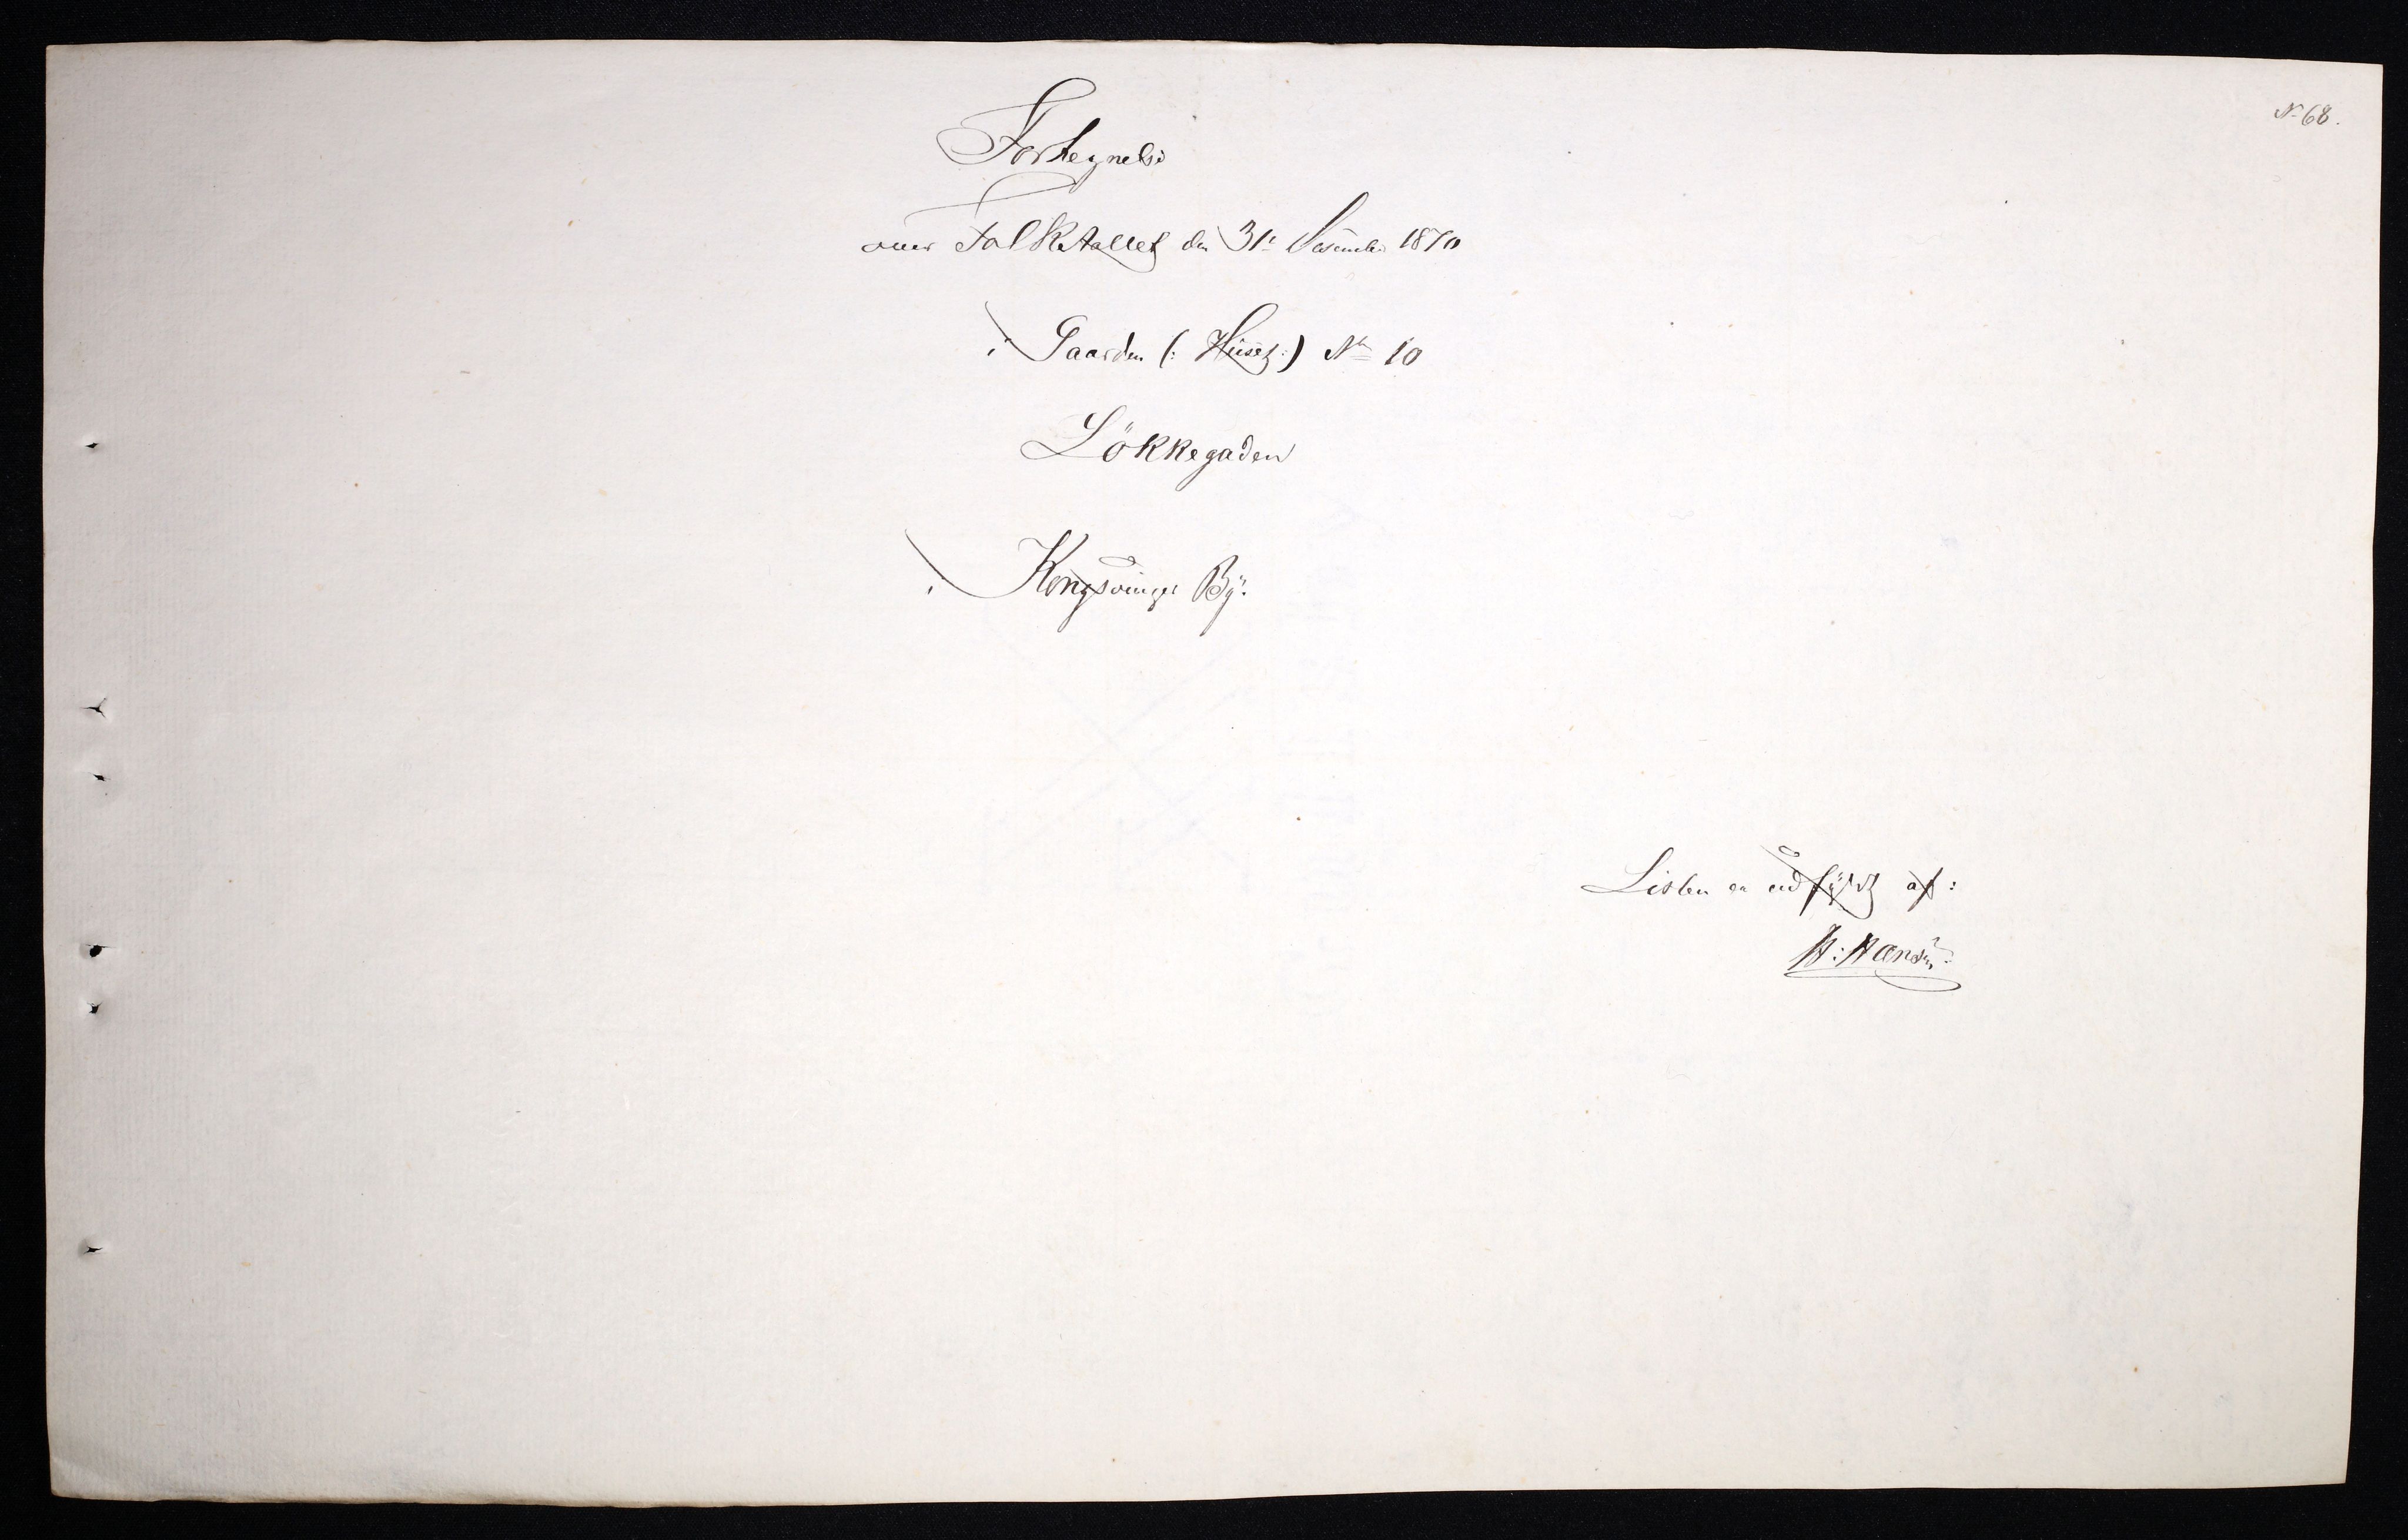 No 68.
Fortegnelse
over Folketallet den 31te December 1870
i Gaarden (: Huset :) No 10
Lökkegaden
i Kongsvinger By.
Listen er udfyldt af:
H: Hansen